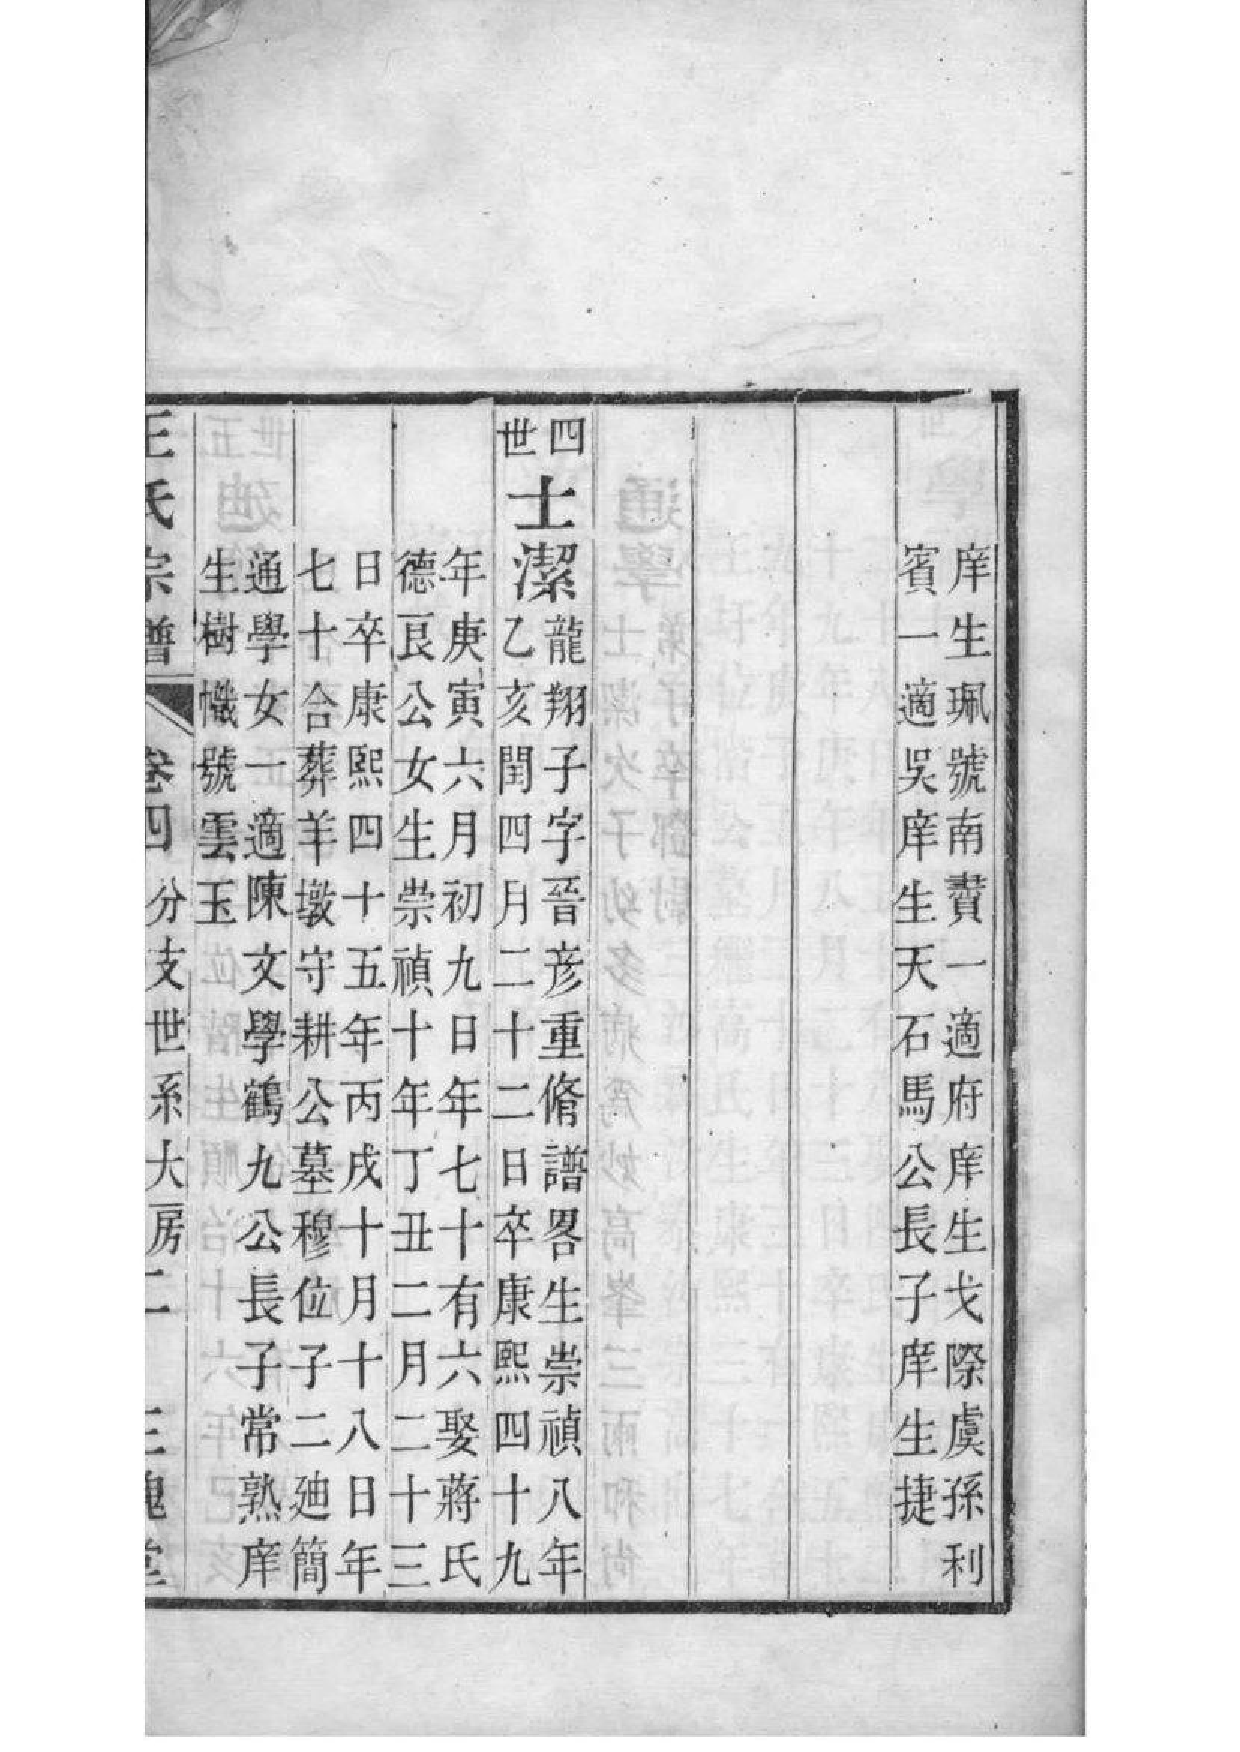 庠生珮號南賮一適府庠生戈際虞孫利
賓一適吳庠生天石馬公長子庠生捷
四世
士潔
龍翔子字晉彥重脩譜畧生崇禎八年
乙亥閏四月二十二日卒康熙四十九
年庚寅六月初九日年七十有六娶蔣氏
德良公女生崇禎十年丁丑二月二十三
日卒康熙四十五年丙戌十月十八日年
七十合葬羊墩守耕公墓穆位子二廸簡
通學女一適陳文學鶴九公長子常熟庠
生樹幟號雲玉
王氏宗譜 卷四 分支世系大房二 三槐堂